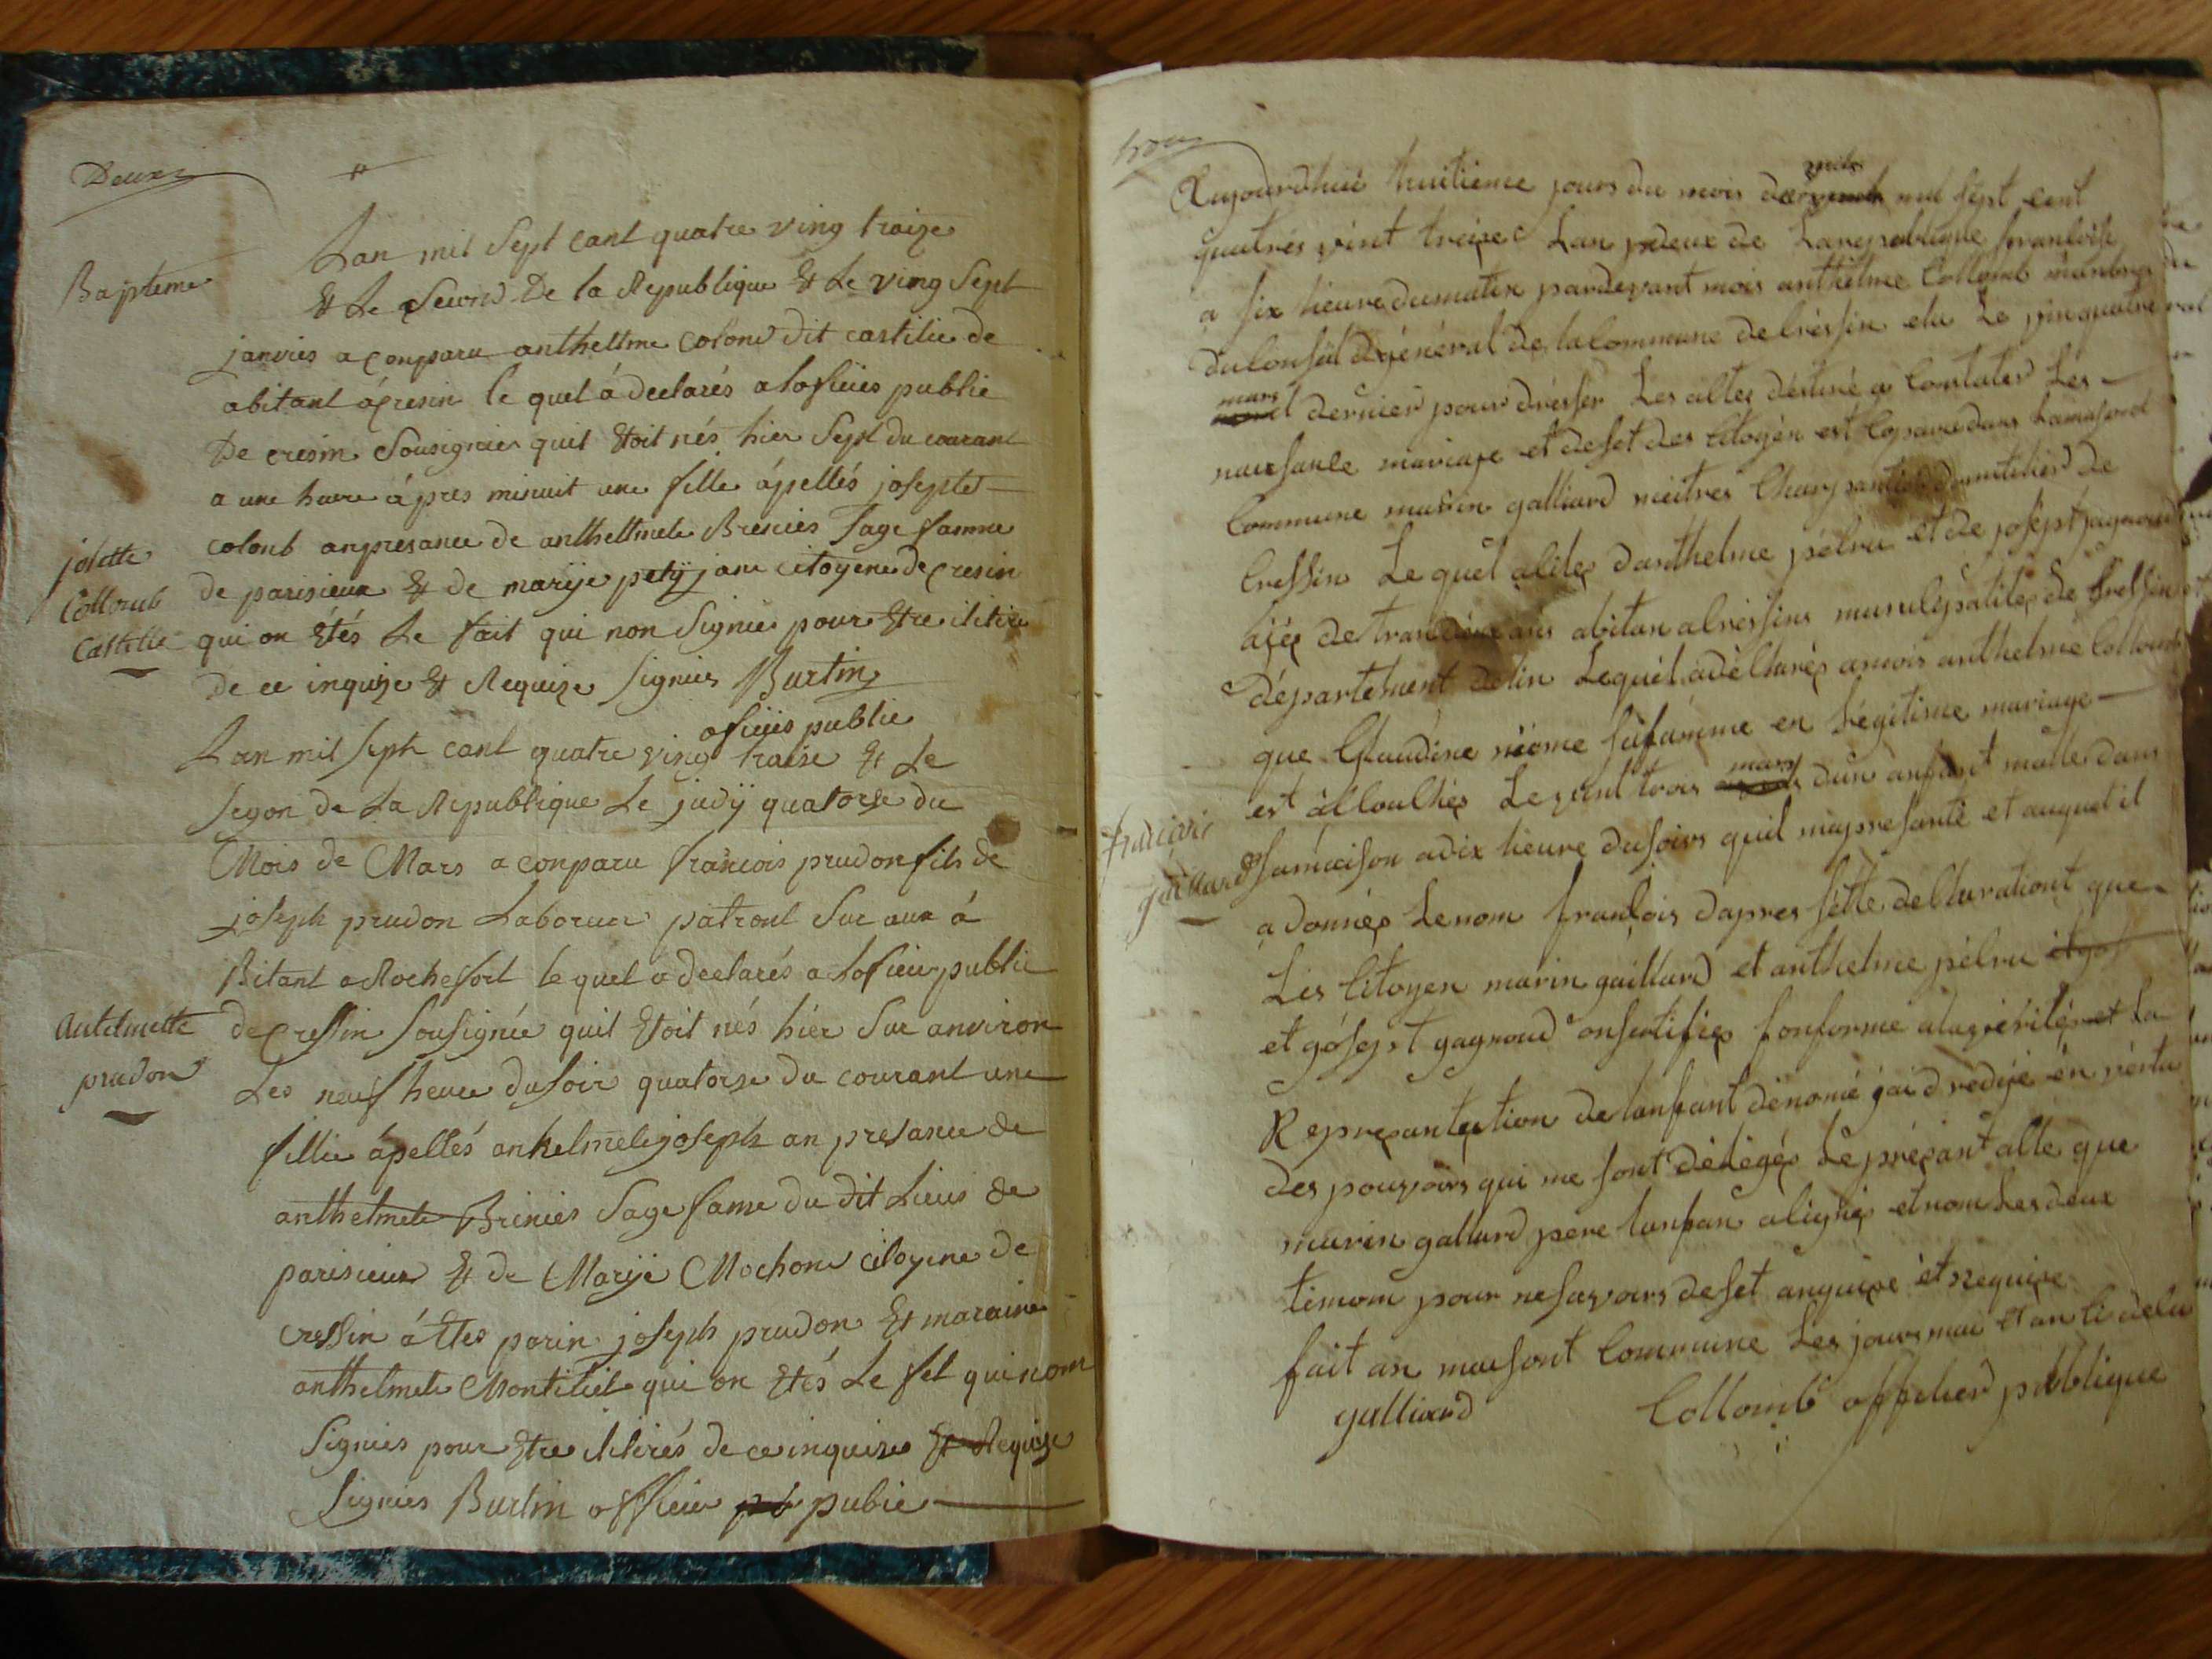 Deux
Bapteme
Lan mil Sept cant quatre ving traize
& Le Secord De la Republique & Le ving Sept
janvies a conparu anthellme colond dit castilie de
abitant á cresin le quel á declarés a lofisies publie
De cresin Sousignier quil Etoit nés hier Sept du courant
a une heure á pres minuit une fille ápellés josephte
colonb anpresance de anthellmete Brenies Sage famme
josette
Collomb
Castille
de parisieux & de marije petijjane citoyene de cresin
qui on Etés Le fait qui non Signies pour Etre ilitirés
de ce inquize & Requize Signies Burtin
ofisiis publie
Lan mil Seph cant quatre ving traise & Le
Segon de La Republique Le judÿ quatorse du
Mois de Mars a conparu francois prudon fils de
joseph prudon Laborueur patront Sur aux á
Bitant a Rochefort le quel a declarés a lofisies publie
Antelmette
prudon
de cressin Sousignée quil Etoit nés hier Sur anviron
Les neuf heure du soir quatorse du courant une
fillie ápellés anhelmete joseph an presance de
anthelmete Brinies Sage fame du dit Lieus de
parisieux & de Marije Mochon citoyene de
cressin á Etes parin joseph prudon & maraine
anthelmete Montiliet qui on Etés Le fet qui nom
Signies pour Etre ilitirés de ce inquize & Requize
Signies Burtin offisier pub pubie
trois
Aujourdhui huitieme jours du mois mil sept cent
quatrés vint treize Lan deux de La republique franloise
a six heure dumatin pardevant mois anthelme Collomb manbres
dulonseil général de la Commune de Cressin elu Le vinquatre
mars dernier pour drésser Les altes destiné a Constater Les
naissance mariage et deset des Citoyén est Conparu dans Lamaisond
Commune marin galliard meitres Charpantier de
Cressin Lequel danthelme pélru et de josept gagnoud
ajés de tran deux ans abitan a Cressins munisipalités de Cressin
département delin Lequél adéllarés amois anthelme Collomb
que Glaudine niome safamme en Légitime mariage
est allouchés Le vint trois mars dun anfant malle dans
francois
gaillard
samaison adix heure dusoirs quil ma presanté et auquel il
a données Le nom franlois dapres sette dellarationt que
Lés Citoyen marin gaillard et anthelme pélru
et gosept gagnoud onsertifiés Conforme alaveritée et La
Représantation de lanfant dénomé jai redije én vértu
dés pouvoirs qui me sont délégés Le présant alte que
marin gallard pére lanfan a signé et nom Les deux
timom pour ne savoirs deset anquise et requise
fait an maisont Commune Les jours moi et an li delu
galliard
Collomb offisier publique